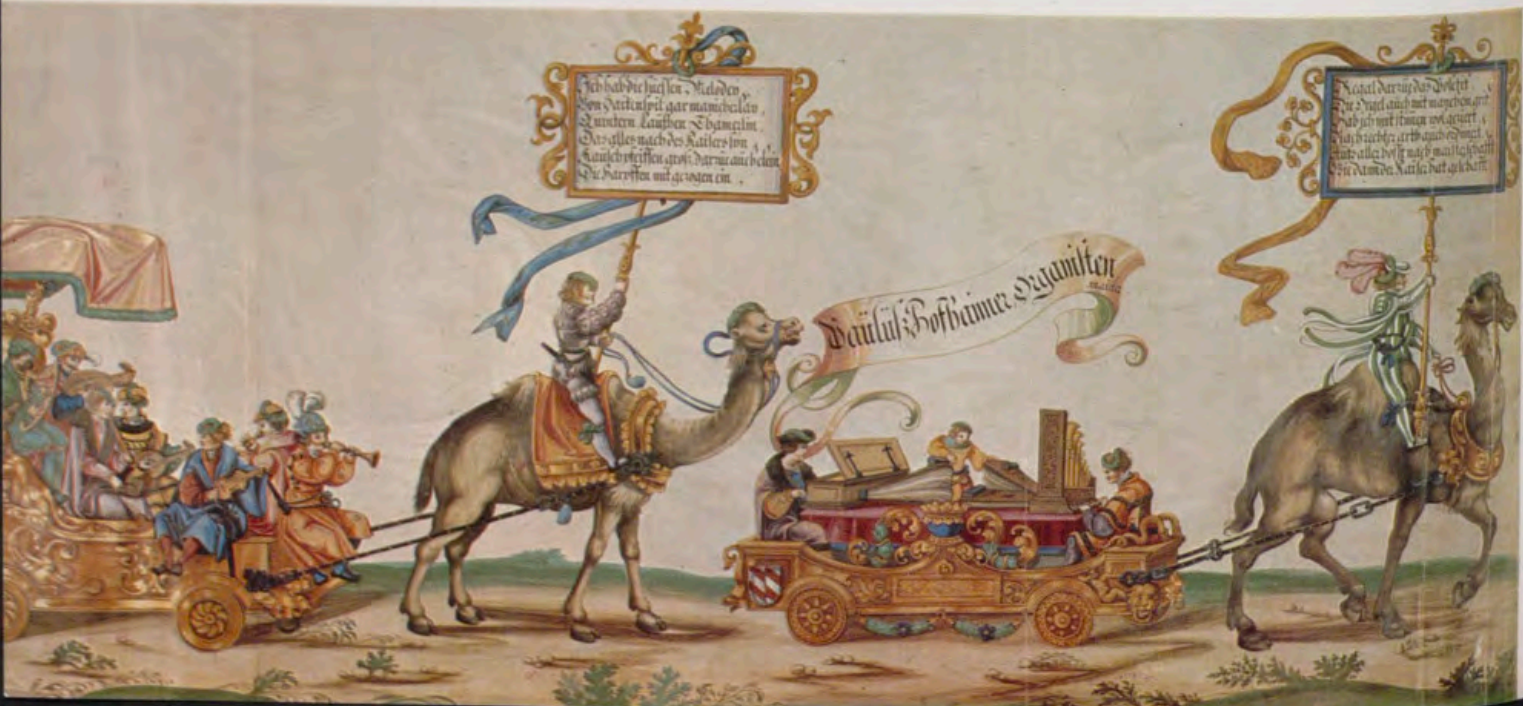 Ich hab die suessen Melodey
Von Saitenspil gar mancherlay
Quintern Lauthen Thamerlin
Das alles nach des Kaisers syn
Rauschpfeiffen groß darzue auch clein
Die Harpffen mit gezogen ein
Paulus Hofhaimer Organisten
maister
Regal darzue das Posetif
Die Orgel auch mit
Hab ich mit stimen wol geziert
Nach rechter arth auch ordiniert
aller hoffs nach maisterschafft
Wie dann der Kaiser hat geschafft